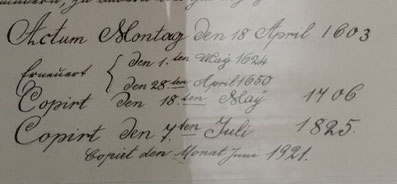 Actum Montag den 18 April 1603
Erneuert
den 1.ten Maÿ 1624
den 28ten April 1650
Copirt den 18.ten Maÿ 1706
Copirt den 7ten Juli 1825.
Copiert den Monat Juni 1921.